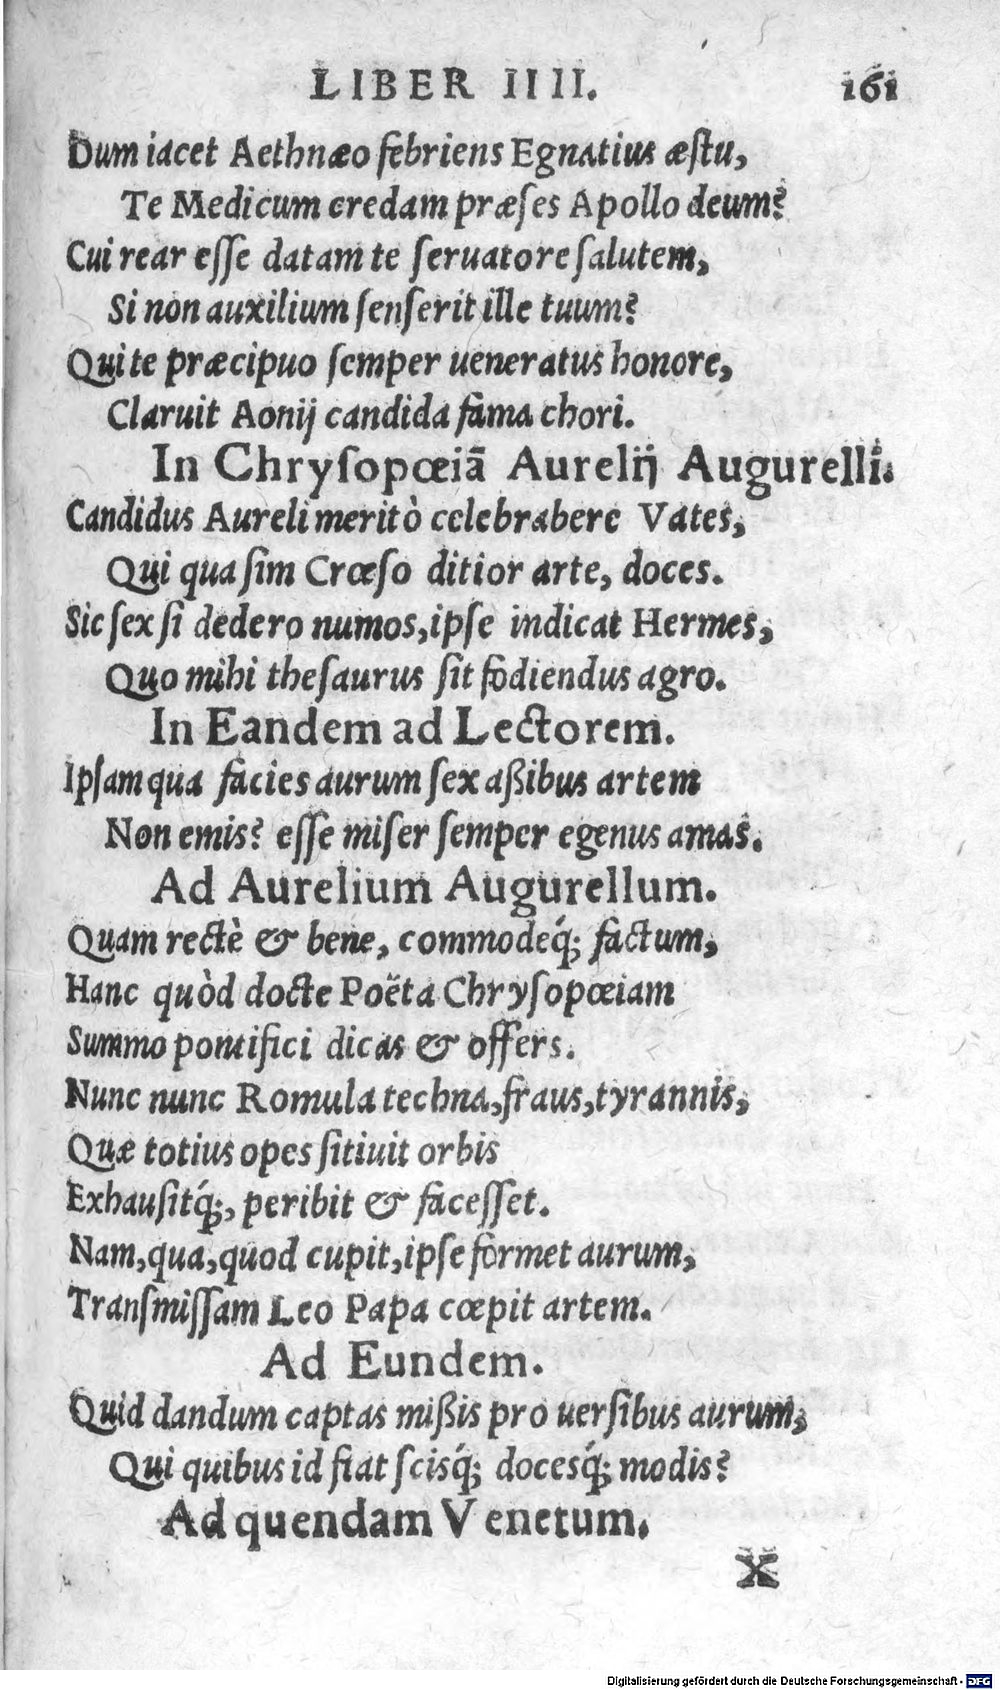 LIBER IIII. 161
Dum iacet Aethnæo febriens Egnatius æſtu,
Te Medicum credam præſes Apollo deum?
Cui rear eſſe datam te ſeruatore ſalutem,
Si non auxilium ſenſerit ille tuum?
Qui te præcipuo ſemper ueneratus honore,
Claruit Aonij candida fama chori.
In Chryſopœiā Aurelij Augurelli.
Candidus Aureli meritò celebrabere Vates,
Qui qua ſim Crœſo ditior arte, doces.
Sic ſex ſi dedero numos, ipſe indicat Hermes,
Quo mihi theſaurus ſit fodiendus agro.
In Eandem ad Lectorem.
Ipſam qua facies aurum ſex aßibus artem
Non emis? eſſe miſer ſemper egenus amas.
Ad Aurelium Augurellum.
Quam rectè & bene, commodeq́; factum,
Hanc quòd docte Poëta Chryſopœiam
Summo pontifici dicas & offers.
Nunc nunc Romula techna, fraus, tyrannis,
Quæ totius opes ſitiuit orbis
Exhauſitq́;, peribit & faceſſet.
Nam, qua, quod cupit, ipſe formet aurum,
Tranſmiſſam Leo Papa cœpit artem.
Ad Eundem.
Quid dandum captas mißis pro uerſibus aurum,
Qui quibus id fiat ſcisq́; docesq́; modis?
Ad quendam Venetum.
X
Digitalisierung gefördert durch die Deutsche Forschungsgemeinschaft - DFG